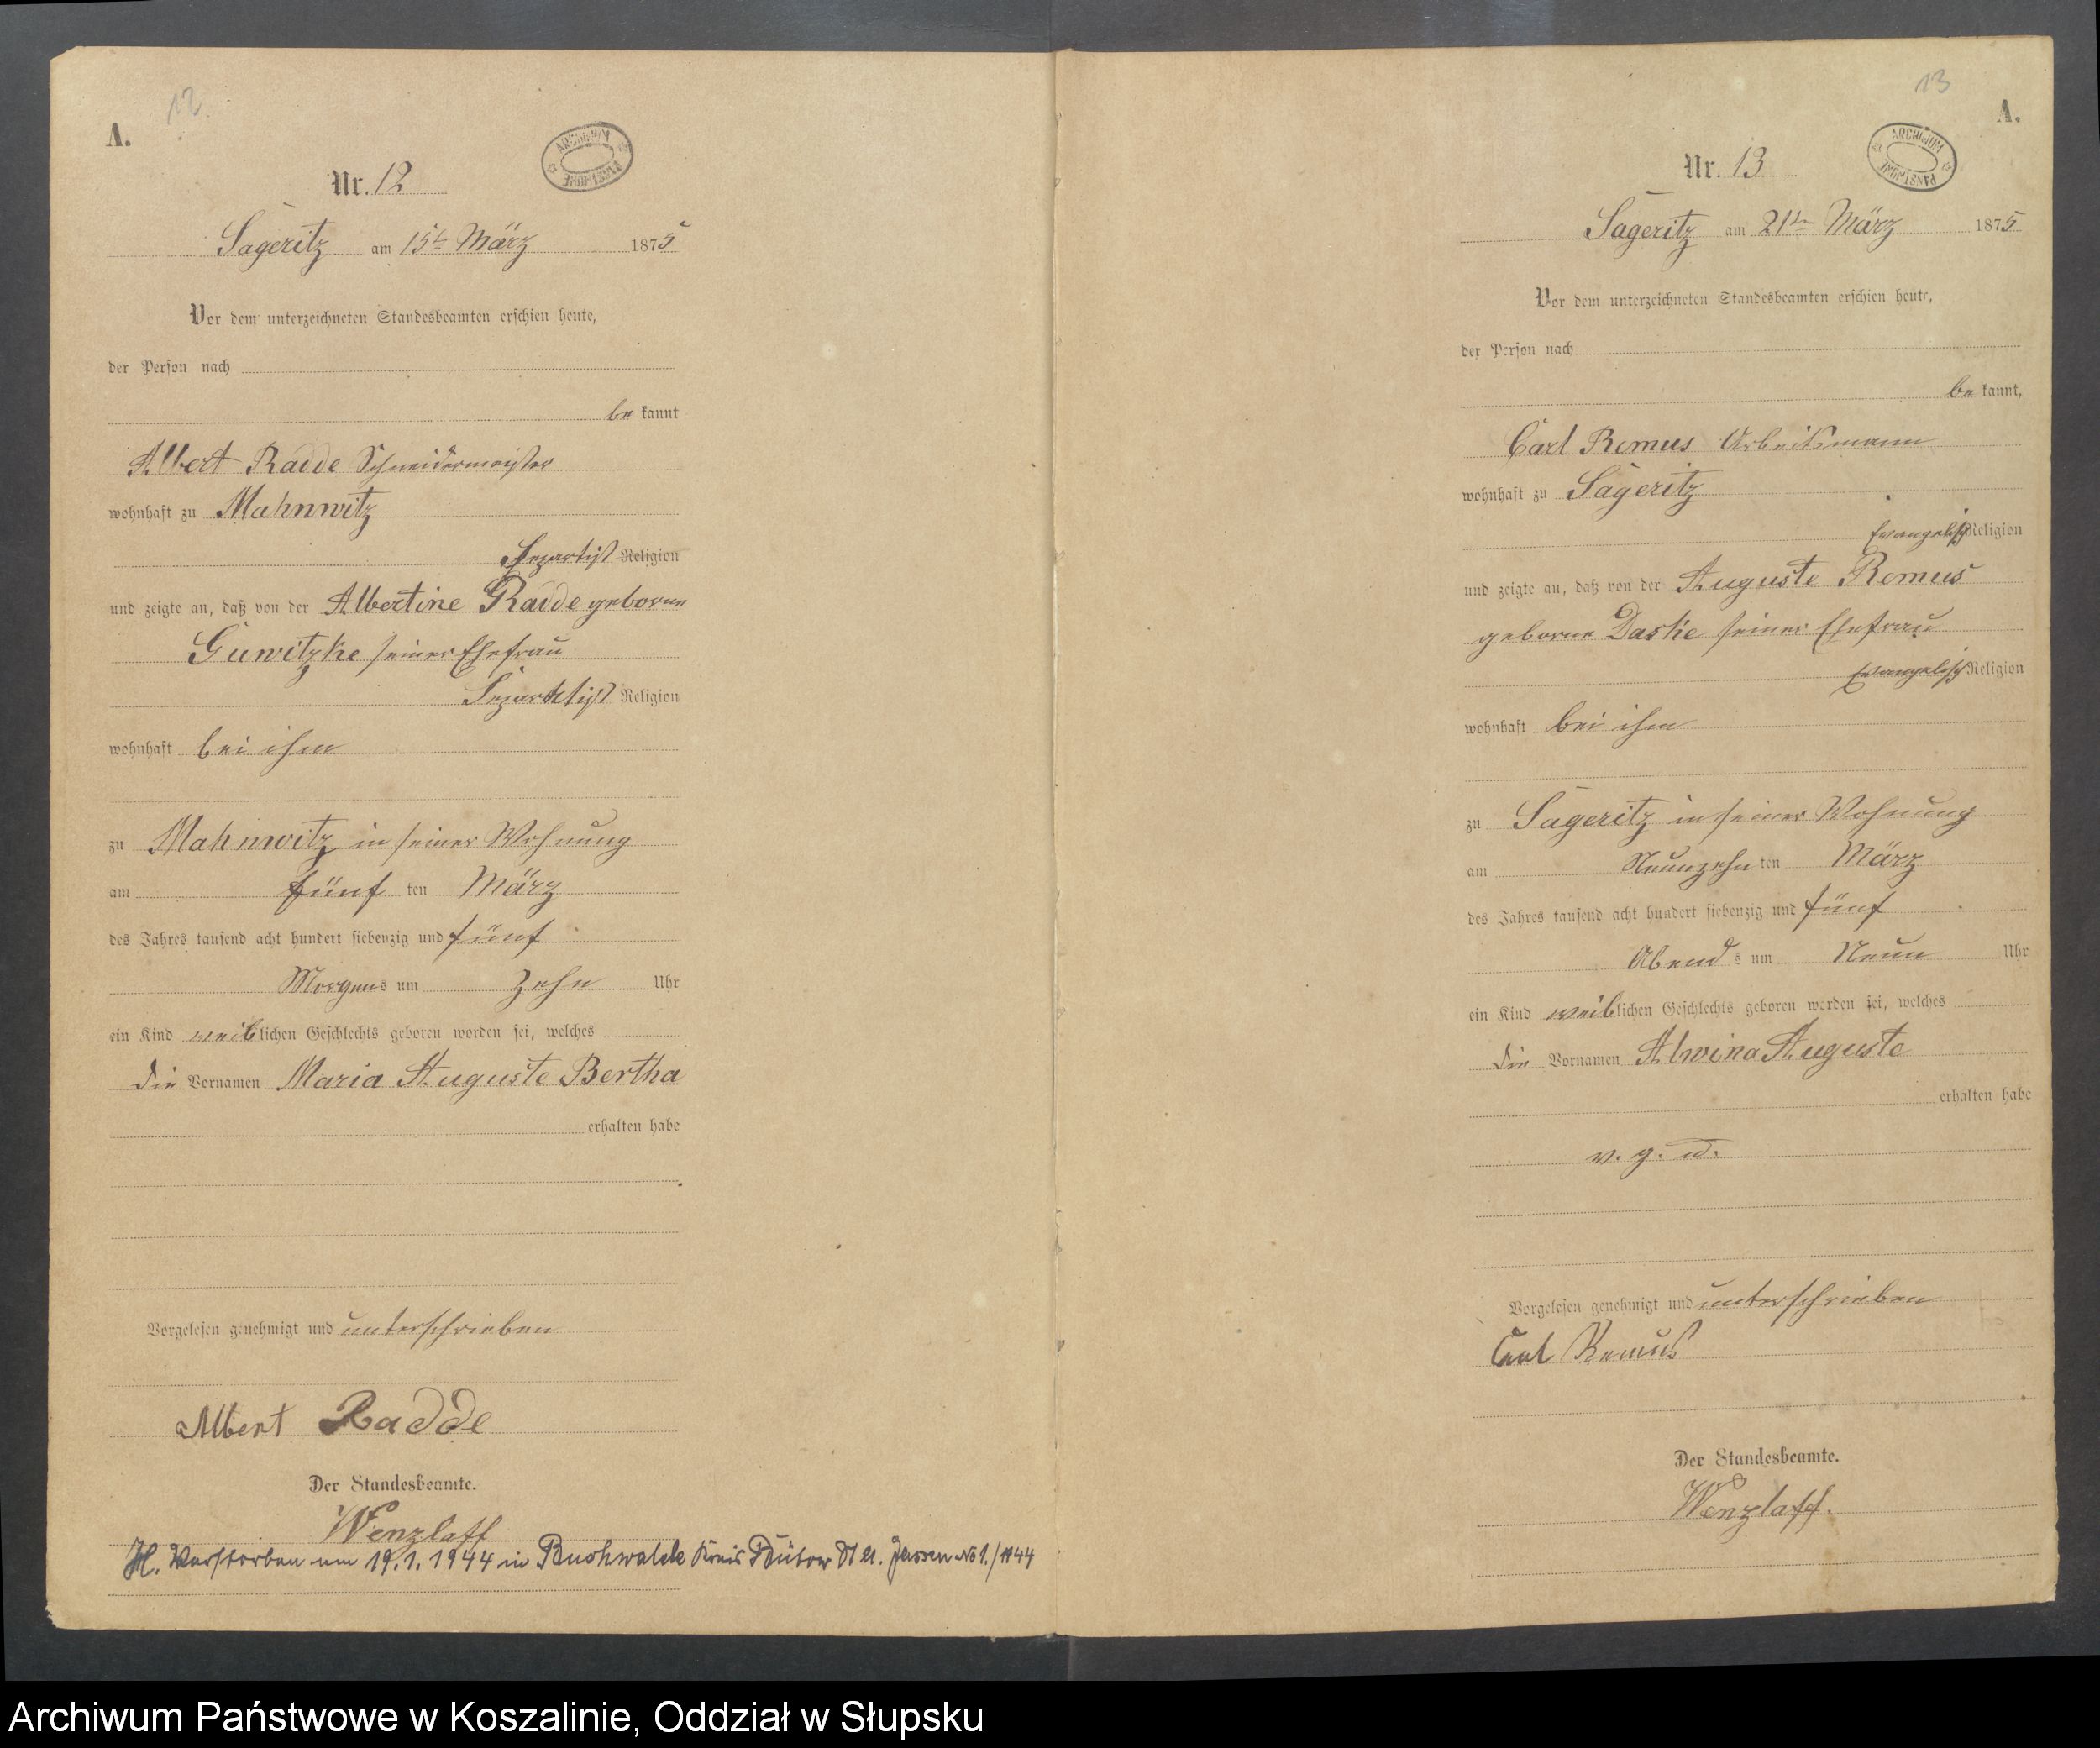 12
A.
Nr. 12
ARCHIWUM PAŃSTWOWE
Sageritz am 15t März 1875
Vor dem unterzeichneten Standesbeamten erschien heute,
der Person nach
be kannt
Albert Radde Schneidermeister
wohnhaft zu Mahnwitz
Separtist Religion
und zeigte an, daß von der Albertine Radde geborne
Guwitzke seiner Ehefrau
Separtist Religion
wohnhaft bei ihm
zu Mahnwitz in seiner Wohnung
am fünf ten März
des Jahres tausend acht hundert siebenzig und fünf
Morgens um Zehn Uhr
ein Kind weiblichen Geschlechts geboren worden sei, welches
die Vornamen Maria Auguste Bertha
erhalten habe
Vorgelesen genehmigt und unterschrieben
Albert Radde
Der Standesbeamte.
Wenzlaff
H. Verstorben am 19.1.1944 in Buchwalde Kreis Bütow St. A. Jassen No 1./1944
13
A.
Nr. 13
ARCHIWUM PAŃSTWOWE
Sageritz am 21ten März 1875
Vor dem unterzeichneten Standesbeamten erschien heute,
der Person nach
be kannt,
Carl Remus Arbeitsmann
wohnhaft zu Sageritz
Evangelisch Religion
und zeigte an, daß von der Auguste Remus
geborne Daske seiner Ehefrau
Evangelisch Religion
wohnhaft bei ihm
zu Sageritz in seiner Wohnung
am Neunzehn ten März
des Jahres tausend acht hundert siebenzig und fünf
Abends um Neun Uhr
ein Kind weiblichen Geschlechts geboren worden sei, welches
die Vornamen Alwina Auguste
erhalten habe
v. g. u.
Vorgelesen genehmigt und unterschrieben
Carl Remus
Der Standesbeamte.
Wenzlaff.
Archiwum Państwowe w Koszalinie, Oddział w Słupsku